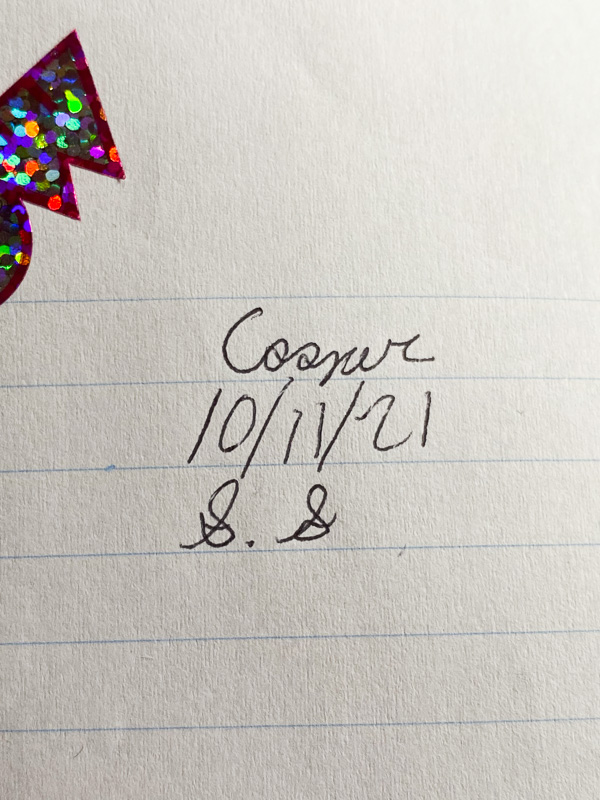 Cooper
10/11/21
S. S